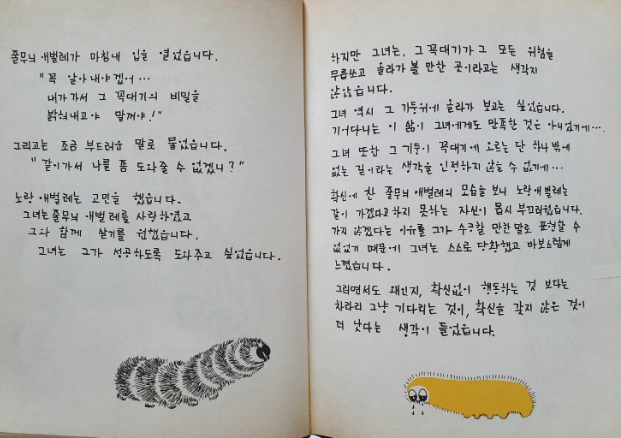 줄무늬 애벌레가 마침내 입을 열었습니다.
"꼭 알아내야겠어...
내가가서 그 꼭대기의 비밀을
밝혀내고야 말꺼야!"
그리고는 조금 부드러운 말로 물었습니다.
"같이가서 나를 좀 도와줄 수 없겠니?"
노랑 애벌레는 고민을 했습니다.
그녀는줄무늬 애벌레를 사랑하였고
그와 함께 살기를 원했습니다.
그녀는 그가 성공하도록 도와주고 싶었습니다.
하지만 그녀는, 그 꼭대기가 그 모든 위험을
무릅쓰고 올라가 볼 만한 곳이라고는 생각지
않았습니다.
그녀 역시 그 기둥위에 올라가 보고는 싶었습니다.
기어다니는 이 삶이 그녀에게도 만족한 것은 아니었기에...
그녀 또한 그 기둥이 꼭대기에 오르는 단 하나 밖에
없는 길이라는 생각을 인정하지 않을 수 없기에...
확신에 찬 줄무늬 애벌레의 모습을 보니 노랑애벌레는
같이 가겠다고하지 못하는 자신이 몹시 부끄러웠습니다.
가지 않겠다는 이유를 그가 수긍할 만한 말로 표현할 수
없었기 때문에 그녀는 스스로 당황했고 바보스럽게
느꼈습니다.
그러면서도 왜인지, 확신없이 행동하는 것 보다는
차라리 그냥 기다리는 것이, 확신을 갖지 않은 것이
더 낫다는 생각이 들었습니다.